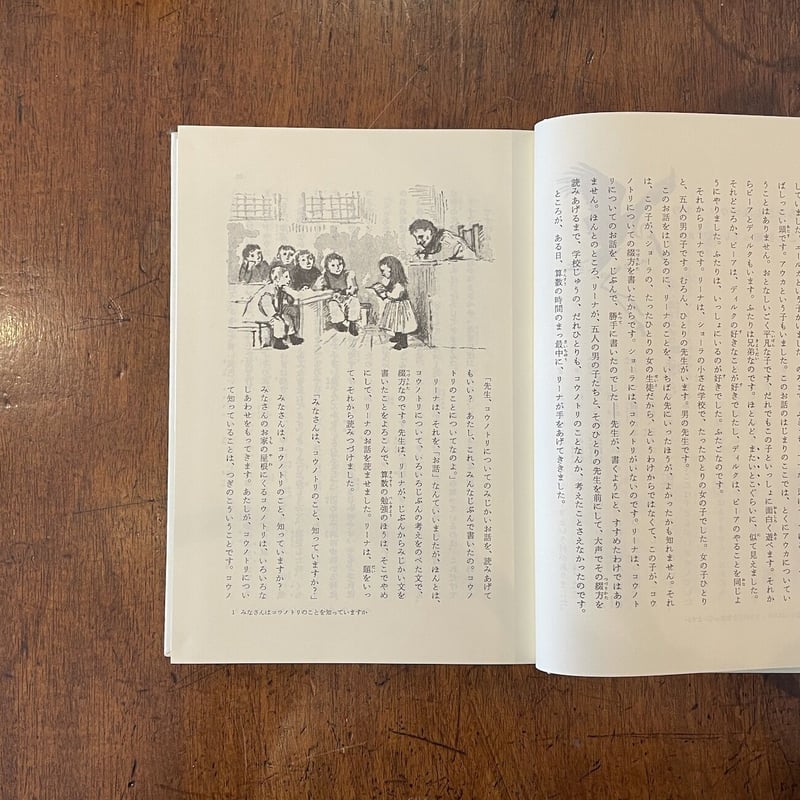 ばしっこい頭です。アウカという子もいました。このお話のはじまりのここでは、とくにアウカについてい
うことはありません。おとなしいごく平凡な子です、だれでもこの子といっしょに面白く遊べます。それか
らピーアとディルクもいます。ふたりは兄弟なのです。ほとんど、またいとこぐらいに、似て見えました。
それどころか、ピーアは、ディルクの好きなことが好きでしたし、ディルクは、ピーアのやることを同じよ
うにやりました。ふたりは、いっしょにいるのが好きでした。ふたごなのです。
それからリーナです。リーナは、ショーラの小さな学校で、たったひとりの女の子でした。女の子ひとり
と、五人の男の子です。むろん、ひとりの先生がいます。男の先生です。
このお話をはじめるのに、リーナのことを、いちばん先にいったほうが、よかったかも知れません。それ
は、この子が、ショーラの、たったひとりの女の生徒だから、というわけではなくて、この子が、コウ
ノトリについての綴方を書いたからです。ショーラには、コウノトリがいないのです。リーナは、コウノト
リについてのお話を、じぶんで、勝手に書いたのでした──先生が、書くようにと、すすめたわけではあり
ません。ほんとのところ、リーナが、五人の男の子たちと、そのひとりの先生を前にして、大声でその綴方を
読みあげるまで、学校じゅうの、だれひとりも、コウノトリのことなんか、考えたことさえなかったのです。
ところが、ある日、算数の時間のまっ最中に、リーナが手をあげてききました。
「先生、コウノトリについてのみじかいお話を、読みあげて
もいい? あたし、これ、みんなじぶんで書いたの。コウノ
トリのことについてなのよ。」
リーナは、それを、「お話」なんていいましたが、ほんとは、
コウノトリについて、いろいろじぶんの考えをのべた文で、
綴方なのです。先生は、リーナが、じぶんからみじかい文を
書いたことをよろこんで、算数の勉強のほうは、そこでやめ
にして、リーナのお話を読ませました。リーナは、題をいっ
て、それから読みつづけました。
「みなさんは、コウノトリのこと、知っていますか?」
みなさんは、コウノトリのこと、知っていますか?
みなさんのお家の屋根にくるコウノトリは、いろいろな
しあわせをもってきます。あたしが、コウノトリについ
て知っていることは、つぎのこういうことです。コウノ
1 みなさんはコウノトリのことを知っていますか